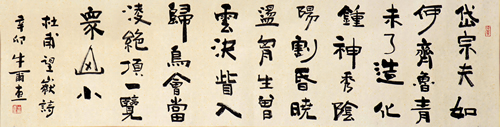 岱宗夫如
何齊魯青
未了造化
鍾神秀陰
陽割昏曉
盪胷生曾
雲決眥入
歸鳥會當
凌絕頂一覽
眾山小
杜甫望嶽詩
辛卯